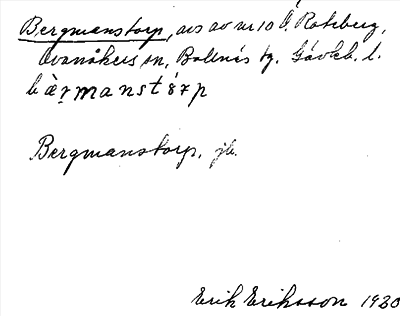 Bergmanstorp, avs av nr 10 i Roteberg,
Ovanåkers sn, Bollnäs tg. Gävleb. l.
bàrmanstórp
Bergmanstorp. jb.
Erik Eriksson 1930